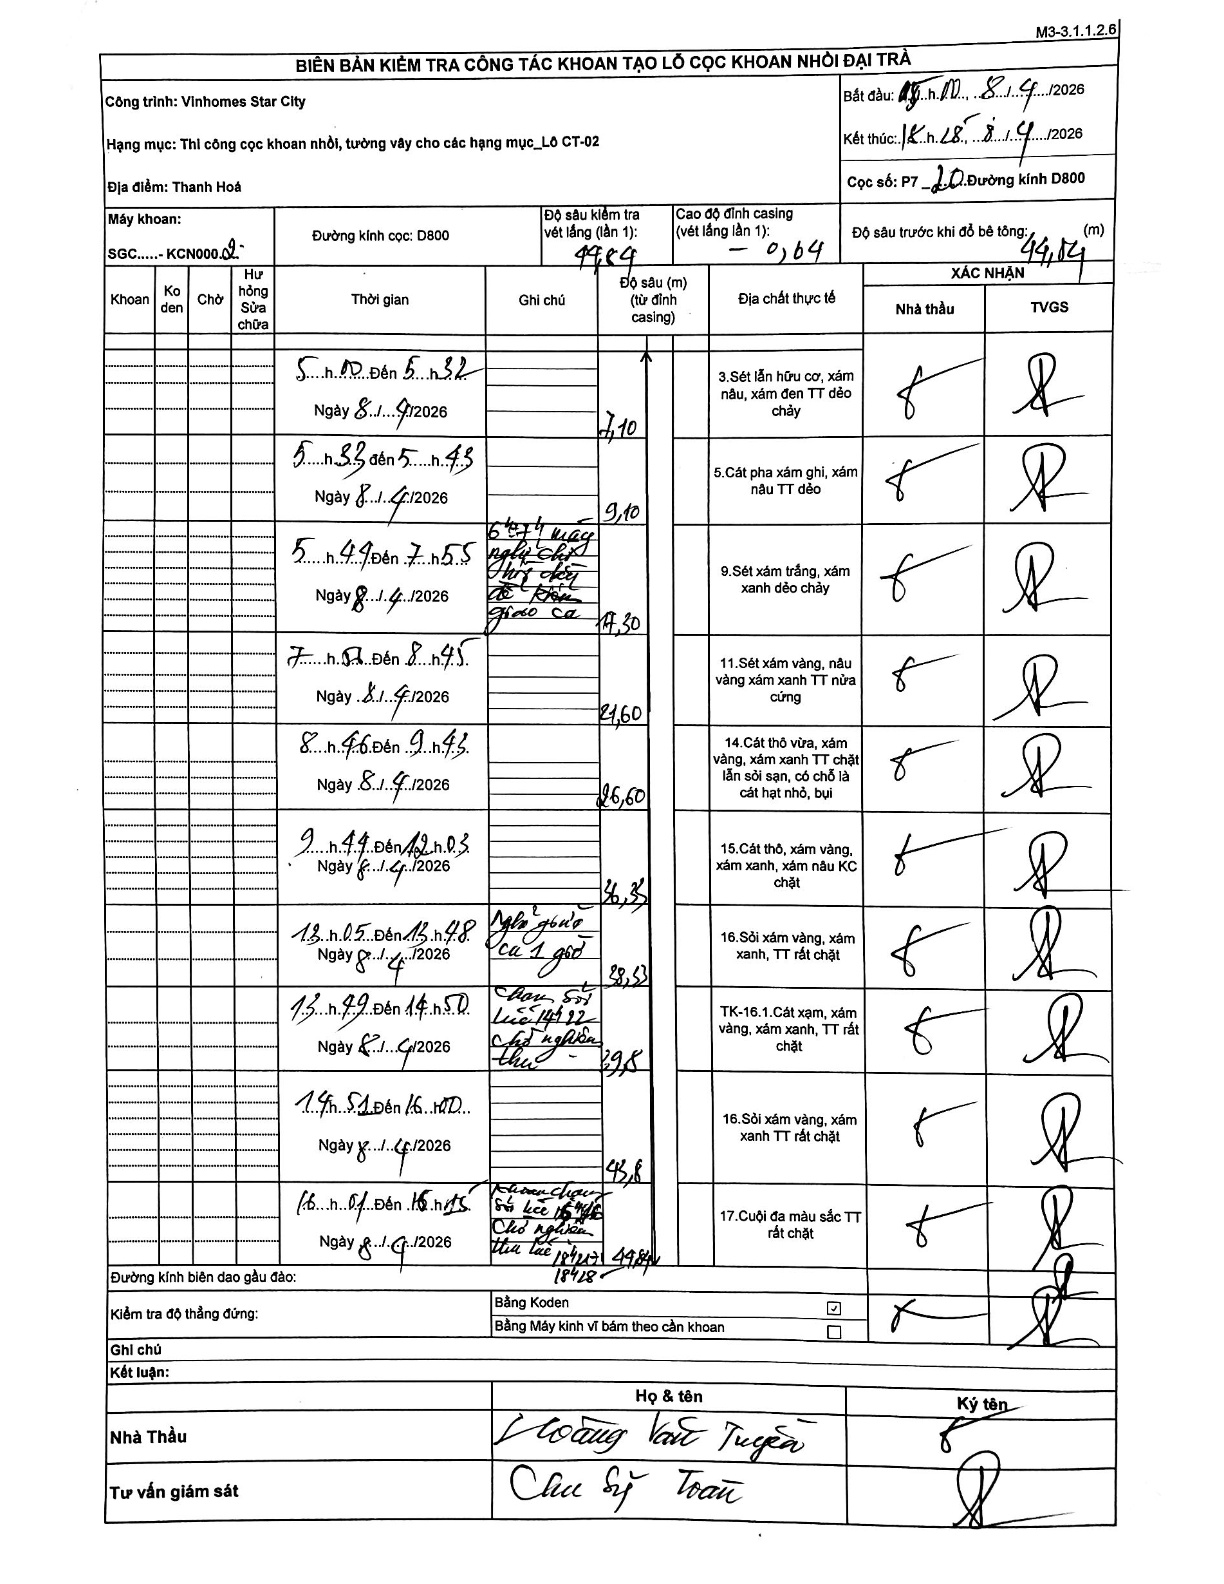 M3-3.1.1.2.6
BIÊN BẢN KIỂM TRA CÔNG TÁC KHOAN TẠO LỖ CỌC KHOAN NHỒI ĐẠI TRÀ
Công trình: Vinhomes Star City
Bắt đầu: 05.h.00, 8./.4./2026
Hạng mục: Thi công cọc khoan nhồi, tường vây cho các hạng mục_Lô CT-02
Kết thúc: 18.h.28, 8./.4./2026
Địa điểm: Thanh Hoá
Cọc số: P7_20.Đường kính D800
Máy khoan:
SGC.....- KCN000.2
Đường kính cọc: D800
Độ sâu kiểm tra vét lắng (lần 1):
44,84
Cao độ đỉnh casing (vét lắng lần 1):
- 0,64
Độ sâu trước khi đổ bê tông: 44,84 (m)
Khoan
Ko den
Chờ
Hư hỏng Sửa chữa
Thời gian
Ghi chú
Độ sâu (m) (từ đỉnh casing)
Địa chất thực tế
XÁC NHẬN
Nhà thầu
TVGS
5....h.00.Đến 5..h.32
Ngày 8../...4/2026
7,10
3.Sét lẫn hữu cơ, xám
nâu, xám đen TT dẻo
chảy
5....h.33 đến 5.....h.43
Ngày 8.../..4./2026
9,10
5.Cát pha xám ghi, xám
nâu TT dẻo
5...h.44.Đến 7..h.55
Ngày 8.../..4./2026
6h-7h máy
nghỉ chờ
giao ca
17,30
9.Sét xám trắng, xám
xanh dẻo chảy
7.....h.57..Đến .8...h.45
Ngày .8../..4./2026
21,60
11.Sét xám vàng, nâu
vàng xám xanh TT nửa
cứng
8...h.46.Đến .9..h.43
Ngày .8../..4/2026
26,60
14.Cát thô vừa, xám
vàng, xám xanh TT chặt
lẫn sỏi sạn, có chỗ là
cát hạt nhỏ, bụi
9....h.44..Đến 12.h.03
Ngày 8.../.4../2026
36,33
15.Cát thô, xám vàng,
xám xanh, xám nâu KC
chặt
.13..h.05..Đến 13..h.48
Ngày 8.../..4../2026
Nghỉ giữa
ca 1 giờ
38,53
16.Sỏi xám vàng, xám
xanh, TT rất chặt
13..h.49..Đến 14.h.50
Ngày 8.../..4./2026
Chạm sỏi
lúc 14h22
chờ nghiệm
thu
39,8
TK-16.1.Cát xạm, xám
vàng, xám xanh, TT rất
chặt
.14.h..51.Đến 16...h.00..
Ngày 8.../..4./2026
43,8
16.Sỏi xám vàng, xám
xanh TT rất chặt
16...h..01..Đến 16..h.15
Ngày 8.../..4./2026
Khoan chạm
Chờ nghiệm
thu lúc 18h27
18h28
44,84
17.Cuội đa màu sắc TT
rất chặt
Đường kính biên dao gầu đào:
Kiểm tra độ thẳng đứng:
Bằng Koden
☑
Bằng Máy kinh vĩ bám theo cần khoan
☐
Ghi chú
Kết luận:
Họ & tên
Ký tên
Nhà Thầu
Hoàng Văn Tuyên
Tư vấn giám sát
Chu Sỹ Toàn